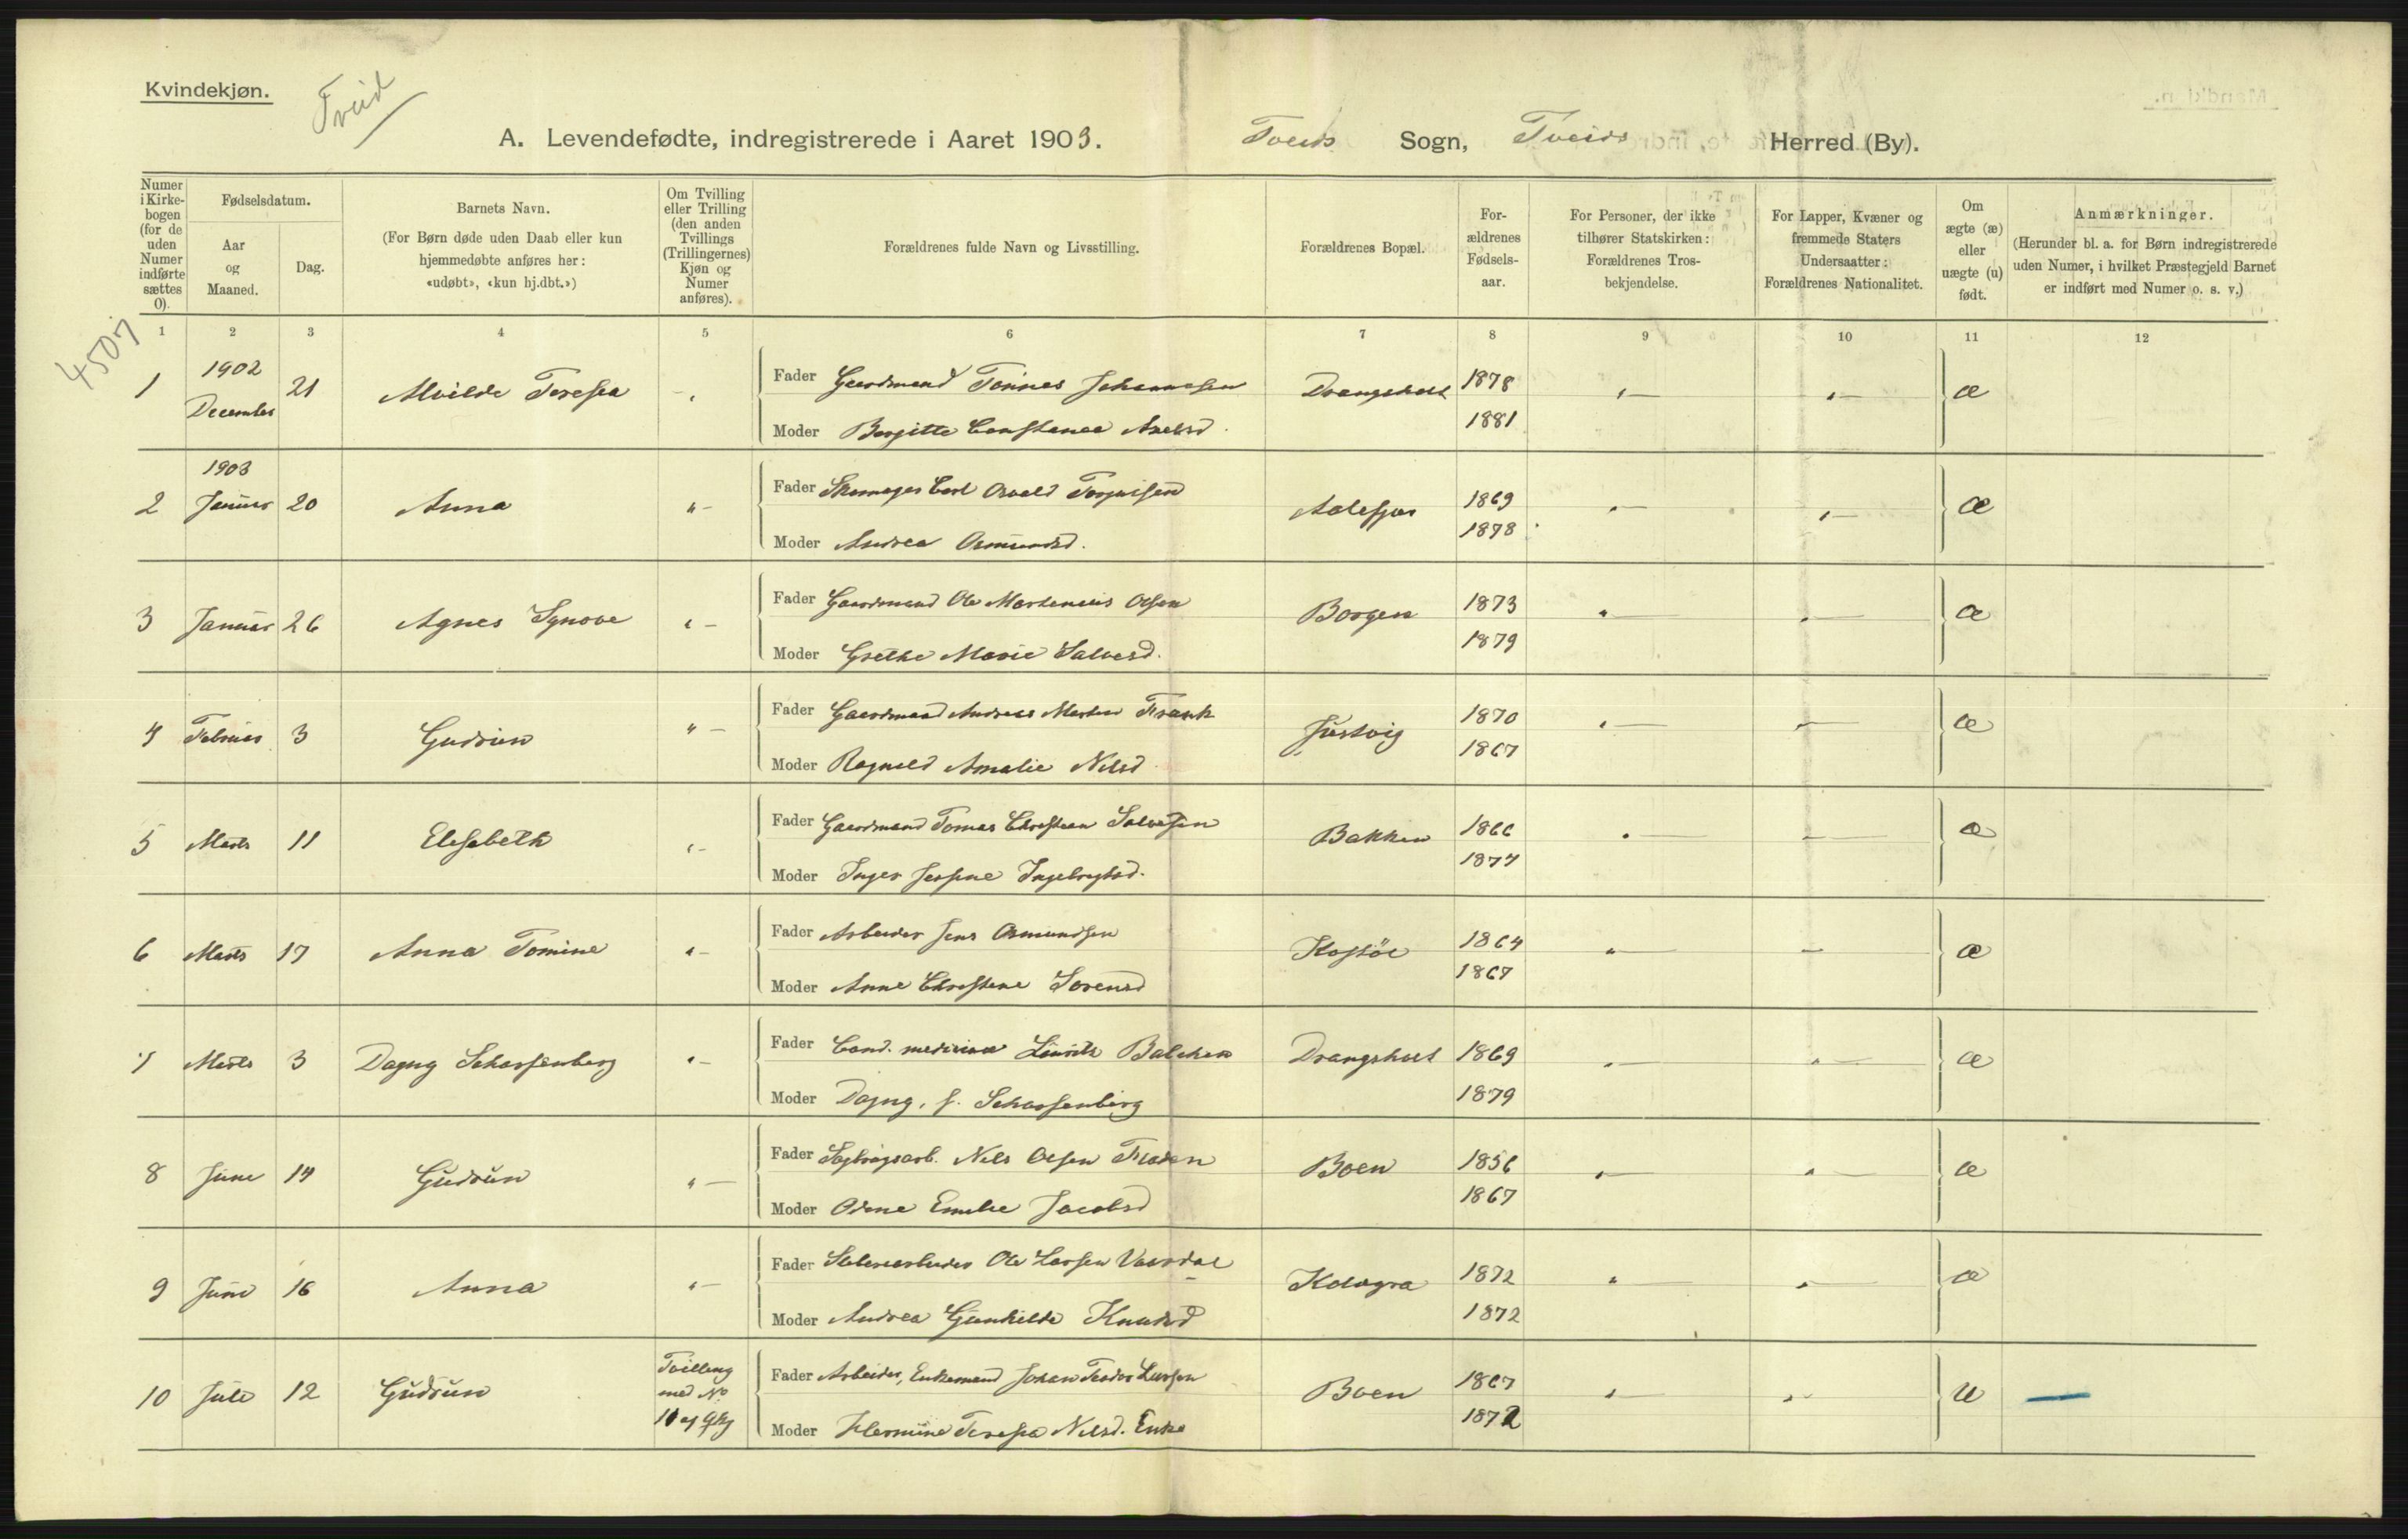 Kvindekjøn.
Tveid
A. Levendefødte, indregistrerede i Aaret 1903. Tveids Sogn, Tveids Herred (By).
Numer i Kirkebogen (for de uden Numer indførte sættes 0).
Fødselsdatum.
Aar og Maaned.
Dag.
Barnets Navn.
(For Børn døde uden Daab eller kun hjemmedøbte anføres her: «udøbt», «kun hj.dbt.»)
Om Tvilling eller Trilling (den anden Tvillings (Trillingernes) Kjøn og Numer anføres).
Forældrenes fulde Navn og Livsstilling.
Forældrenes Bopæl.
Forældrenes Fødselsaar.
For Personer, der ikke tilhører Statskirken: Forældrenes Trosbekjendelse.
For Lapper, Kvæner og fremmede Staters Undersaatter: Forældrenes Nationalitet.
Om ægte (æ) eller uægte (u) født.
Anmærkninger.
(Herunder bl. a. for Børn indregistrerede uden Numer, i hvilket Præstegjeld Barnet er indført med Numer o. s. v.)
1 2 3 4 5 6 7 8 9 10 11 12
4507
1 1902 December 21 Alvilde Teresea - Fader Gaardmand Tønnes Johannesen Drangsholt 1878 æ
Moder Bergitte Constance Axelsd. 1881
2 1903 Januar 20 Anna "- Fader Skomager Carl Osvald Torjusen Aalefjær 1869 æ
Moder Andrea Osmundsd. 1878
3 Januar 26 Agnes Synove "- Fader Gaardmand Ole Martenius Olsen Borgen 1873 æ
Moder Grethe Marie Salvesd. 1879
4 Februar 3 Gudrun "- Fader Gaardmand Andreas Frank Justvig 1870 æ
Moder Ragnild Amalie Nilsd 1867
5 Marts 11 Elisabeth "- Fader Gaardmand Tomas Christian Salvesen Bakken 1866 æ
Moder Inger Jespine Ingebregtsd. 1877
6 Marts 17 Anna Tomine "- Fader Arbeider Jens Osmundsen Kostöl 1864 æ
Moder Anne Christine Sorensd 1867
7 Marts 3 Dagny Scharffenberg "- Fader Cand. medicina Laurits Balchen Drangsholt 1869 æ
Moder Dagny, f. Scharffenberg 1879
8 June 14 Gudrun "- Fader Nils Olsen Boen 1856 æ
Moder Emilie Jacobsd 1867
9 Juni 16 Anna "- Fader Ole Larsen Vaardal 1872 æ
Moder Andrea Gunhilde Knudsd 1872
10 Juli 12 Gudrun Tvilling med No 11 af Fader Arbeider, Enkemand Johan Teodor Larsen Boen 1867 u
Moder Hermine Teresea Nilsd. Enke 1872